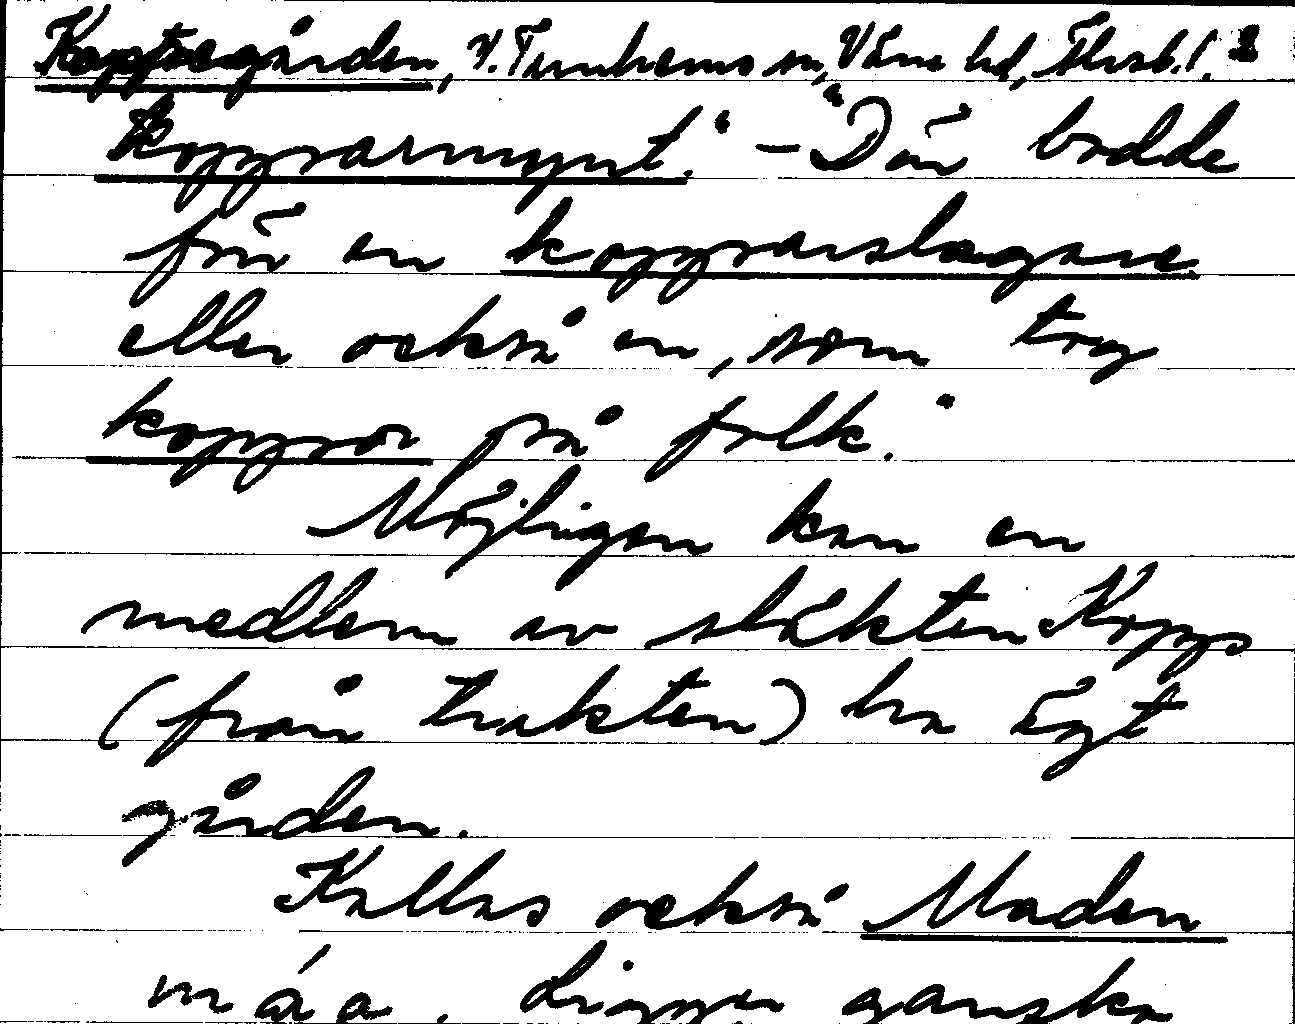 Kopparegården, V. Tunhems sn, Väne hd, Älvsb. l. 2
kopparmynt." – "Där bodde
för en kopparslagare
eller också en, som tog
koppor på folk."
Möjligen kan en
medlem av släkten Kopps
(från trakten) ha ägt
gården.
Kallas också Maden
máa. Ligger ganska